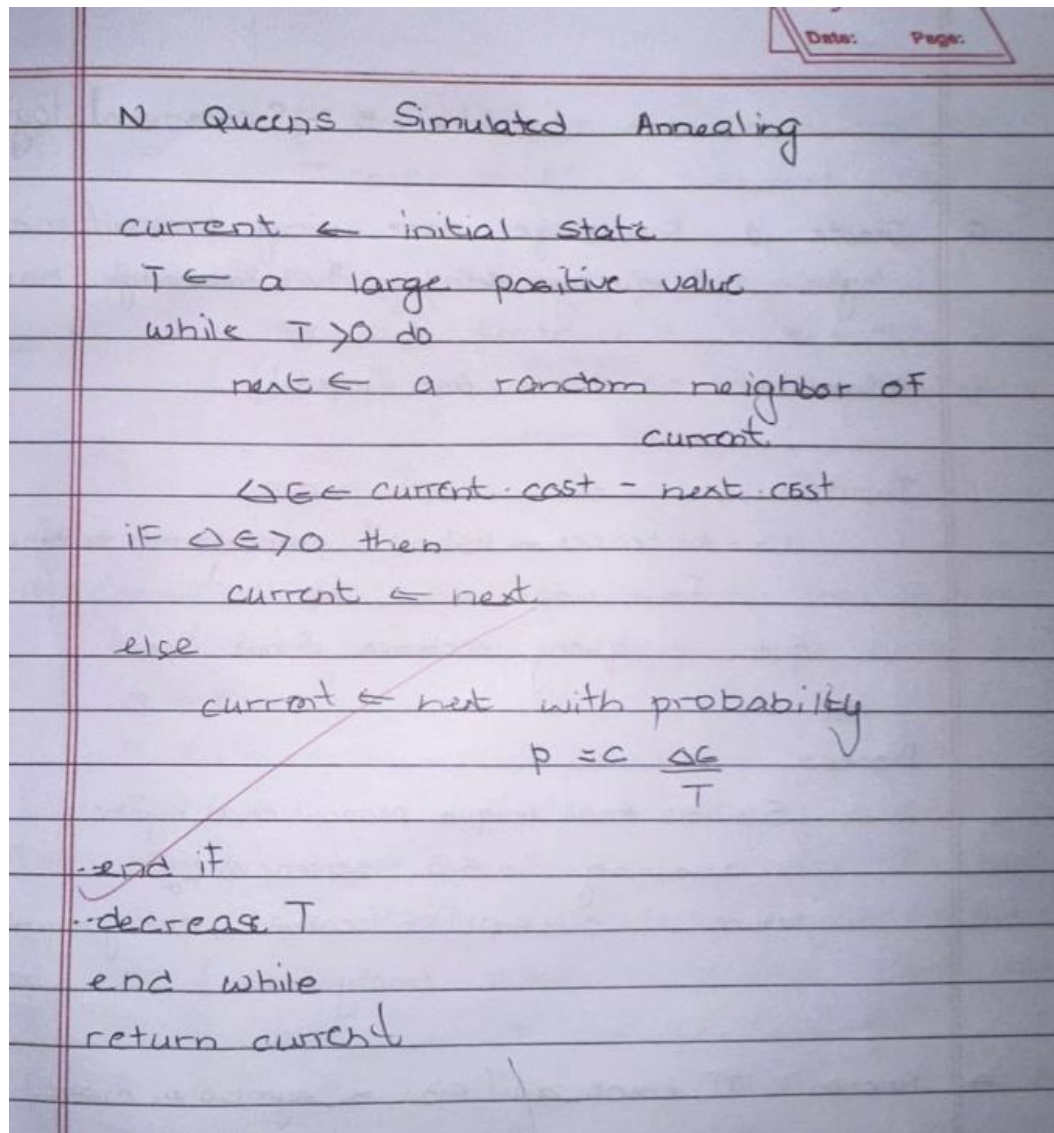 Date: Page:
N Queens Simulated Annealing
current ← initial state
T ← a large positive value
while T >0 do
next ← a random neighbor of
current
ΔE ← current.cost - next.cost
if ΔE>0 then
current ← next
else
current ← next with probability
p = e ΔE
T
end if
decrease T
end while
return current